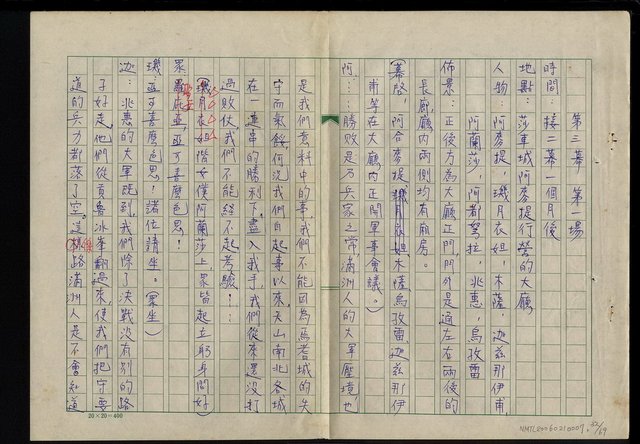 第三幕 第一場
時間：接二幕一個月後
地點：莎車城阿麥提行營的大廳
人物：阿麥提，璣月衣姐，木薩，迦茲那伊甫，
阿蘭莎，阿都努拉，兆惠，烏孜雷
佈景：正後方為大廳正門門外是通左右兩後的
長廊，廳內兩側均有廂房。
（幕啟，阿合麥提璣月衣姐，木薩，烏孜雷，迦茲那伊
甫等在大廳內正開軍事會議。）
阿：……勝敗是乃兵家之常，滿洲人的大軍壓境，也
是我們意料中的事，我們不能因為焉耆城的失
守而氣餒，何況我們自起事以來，天山南北各城
在一連串的勝利下，盡入我手，我們從來還沒打
過敗仗，我們不能經不起考驗！……
（璣月衣姐偕女僕阿蘭莎上，眾皆起立躬身問好）
眾：亞克西，亞可喜麼色思！
璣：亞可喜麼色思！諸位請坐。（眾坐）
迦：兆惠的大軍既到，我們除了決戰沒有別的路
子好走，他們從貢魯冰峯翻過來使我們把守要
道的兵力都落了空，這條路滿洲人是不會知道
20×20=400
NMTL20060210007 32/69